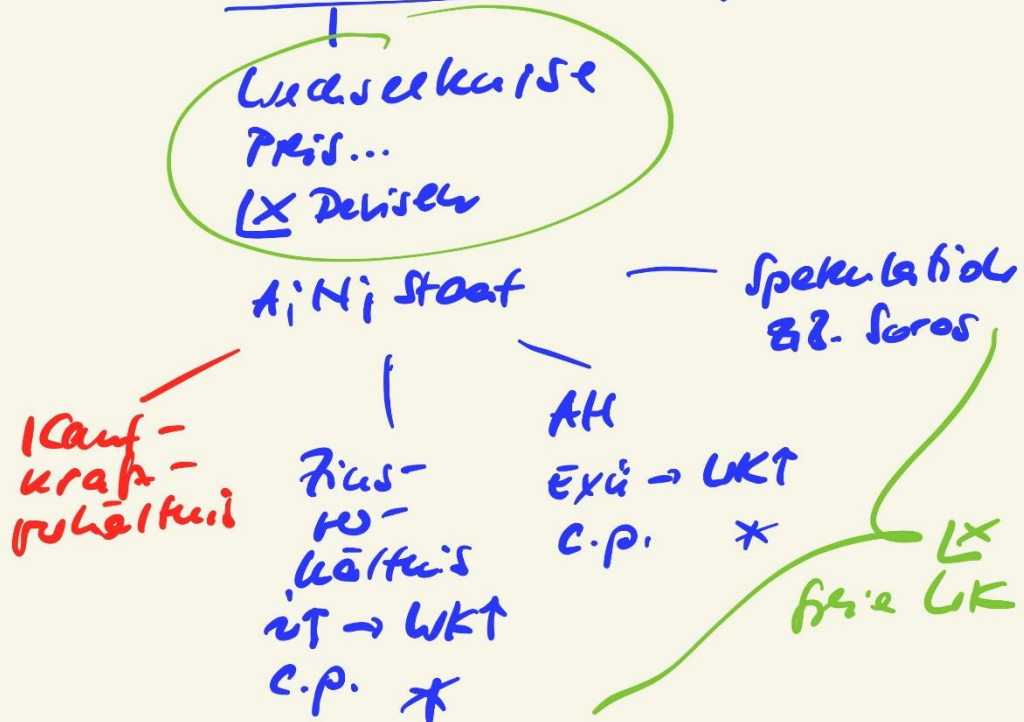 Wechselkurse
Preis...
LX Devisen
A; N; Staat
Spekulation
z.B. Soros
Kauf-
kraft-
verhältnis
Zins-
ver-
hältnis
i↑ → WK↑
c.p. *
AH
Exü → WK↑
c.p. *
LX
freie WK